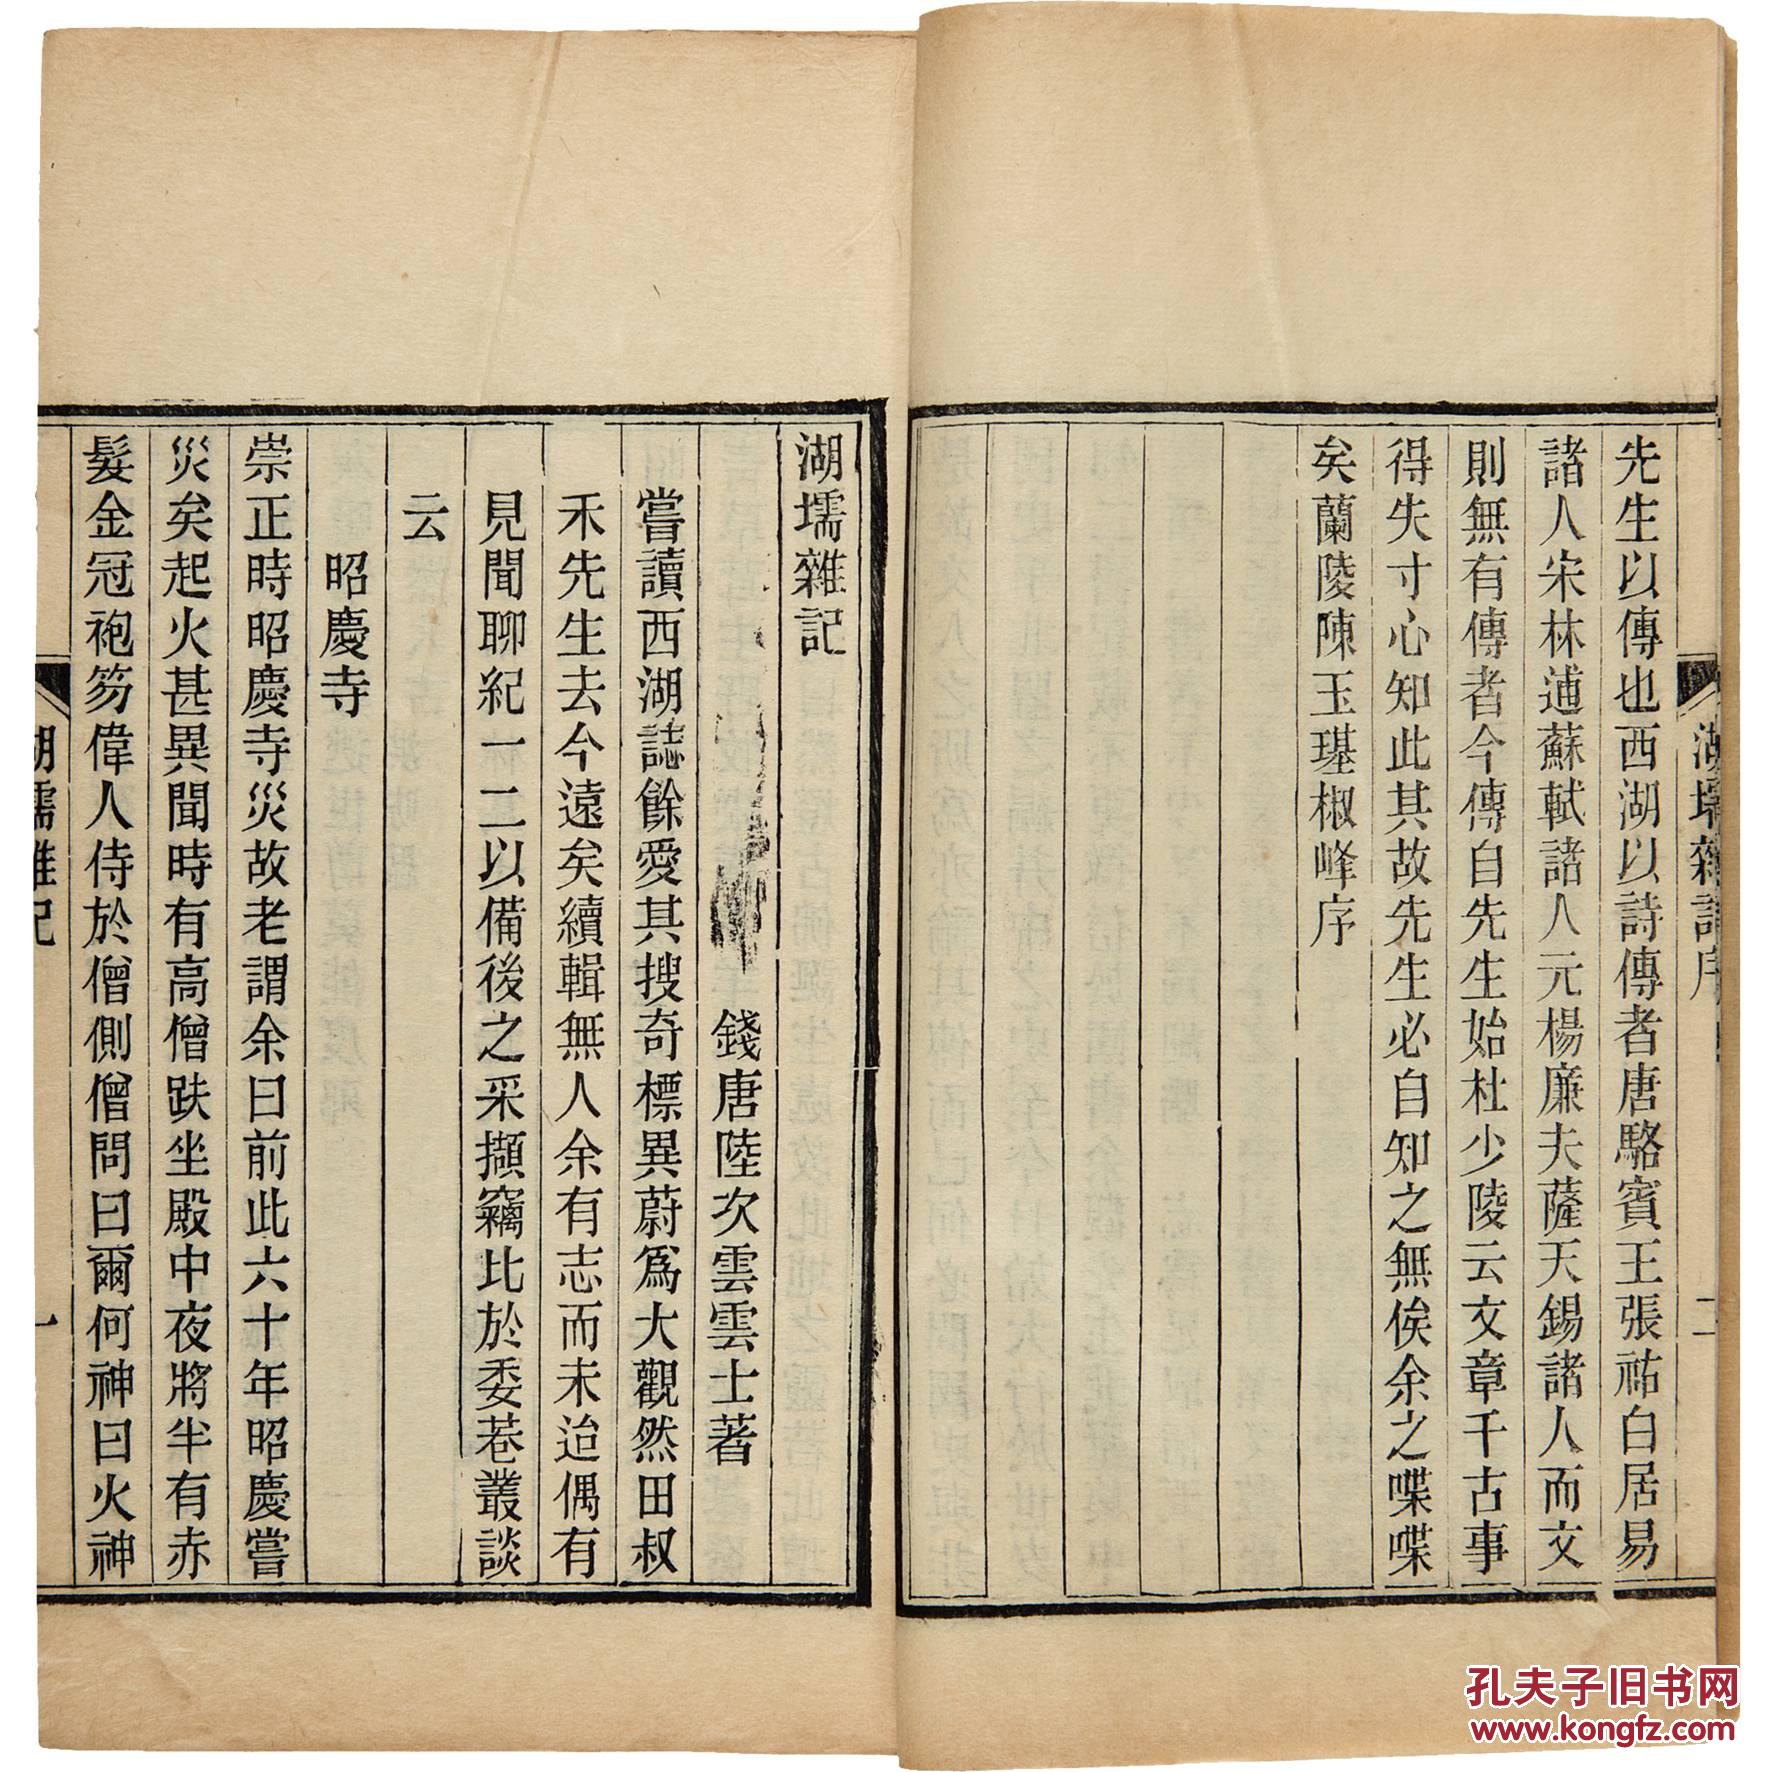 湖壖雜記序
二
先生以傳也西湖以詩傳者唐駱賓王張祐白居易
諸人宋林逋蘇軾諸人元楊廉夫薩天錫諸人而文
則無有傳者今傳自先生始杜少陵云文章千古事
得失寸心知此其故先生必自知之無俟余之喋喋
矣蘭陵陳玉璂椒峰序
湖壖雜記
錢唐陸次雲雲士著
嘗讀西湖誌餘愛其搜奇標異蔚爲大觀然田叔
禾先生去今遠矣續輯無人余有志而未迨偶有
見聞聊紀一二以備後之采擷竊比於委巷叢談
云
昭慶寺
崇正時昭慶寺災故老謂余曰前此六十年昭慶嘗
災矣起火甚異聞時有高僧趺坐殿中夜將半有赤
髮金冠袍笏偉人侍於僧側僧問曰爾何神曰火神
湖壖雜記
一
孔夫子旧书网
www.kongfz.com